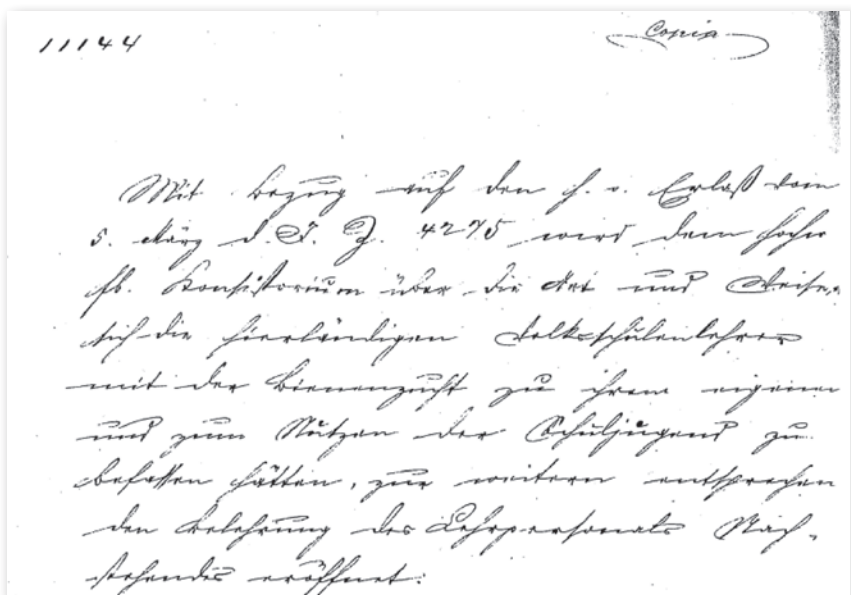 11144
Copia
Mit Bezug auf den h. v. Erlaß vom
5. März d. J. Z. 4275 wird dem hohen
fb. Konsistorium über die Art und Weise,
sich die hierländigen Volksschulenlehrer
mit der Bienenzucht zu ihrem eigenen
und zum Nutzen der Schuljugend zu
befassen hätten, zur weitern entsprechen
den Belehrung des Lehrpersonals Nach-
stehendes eröffnet: